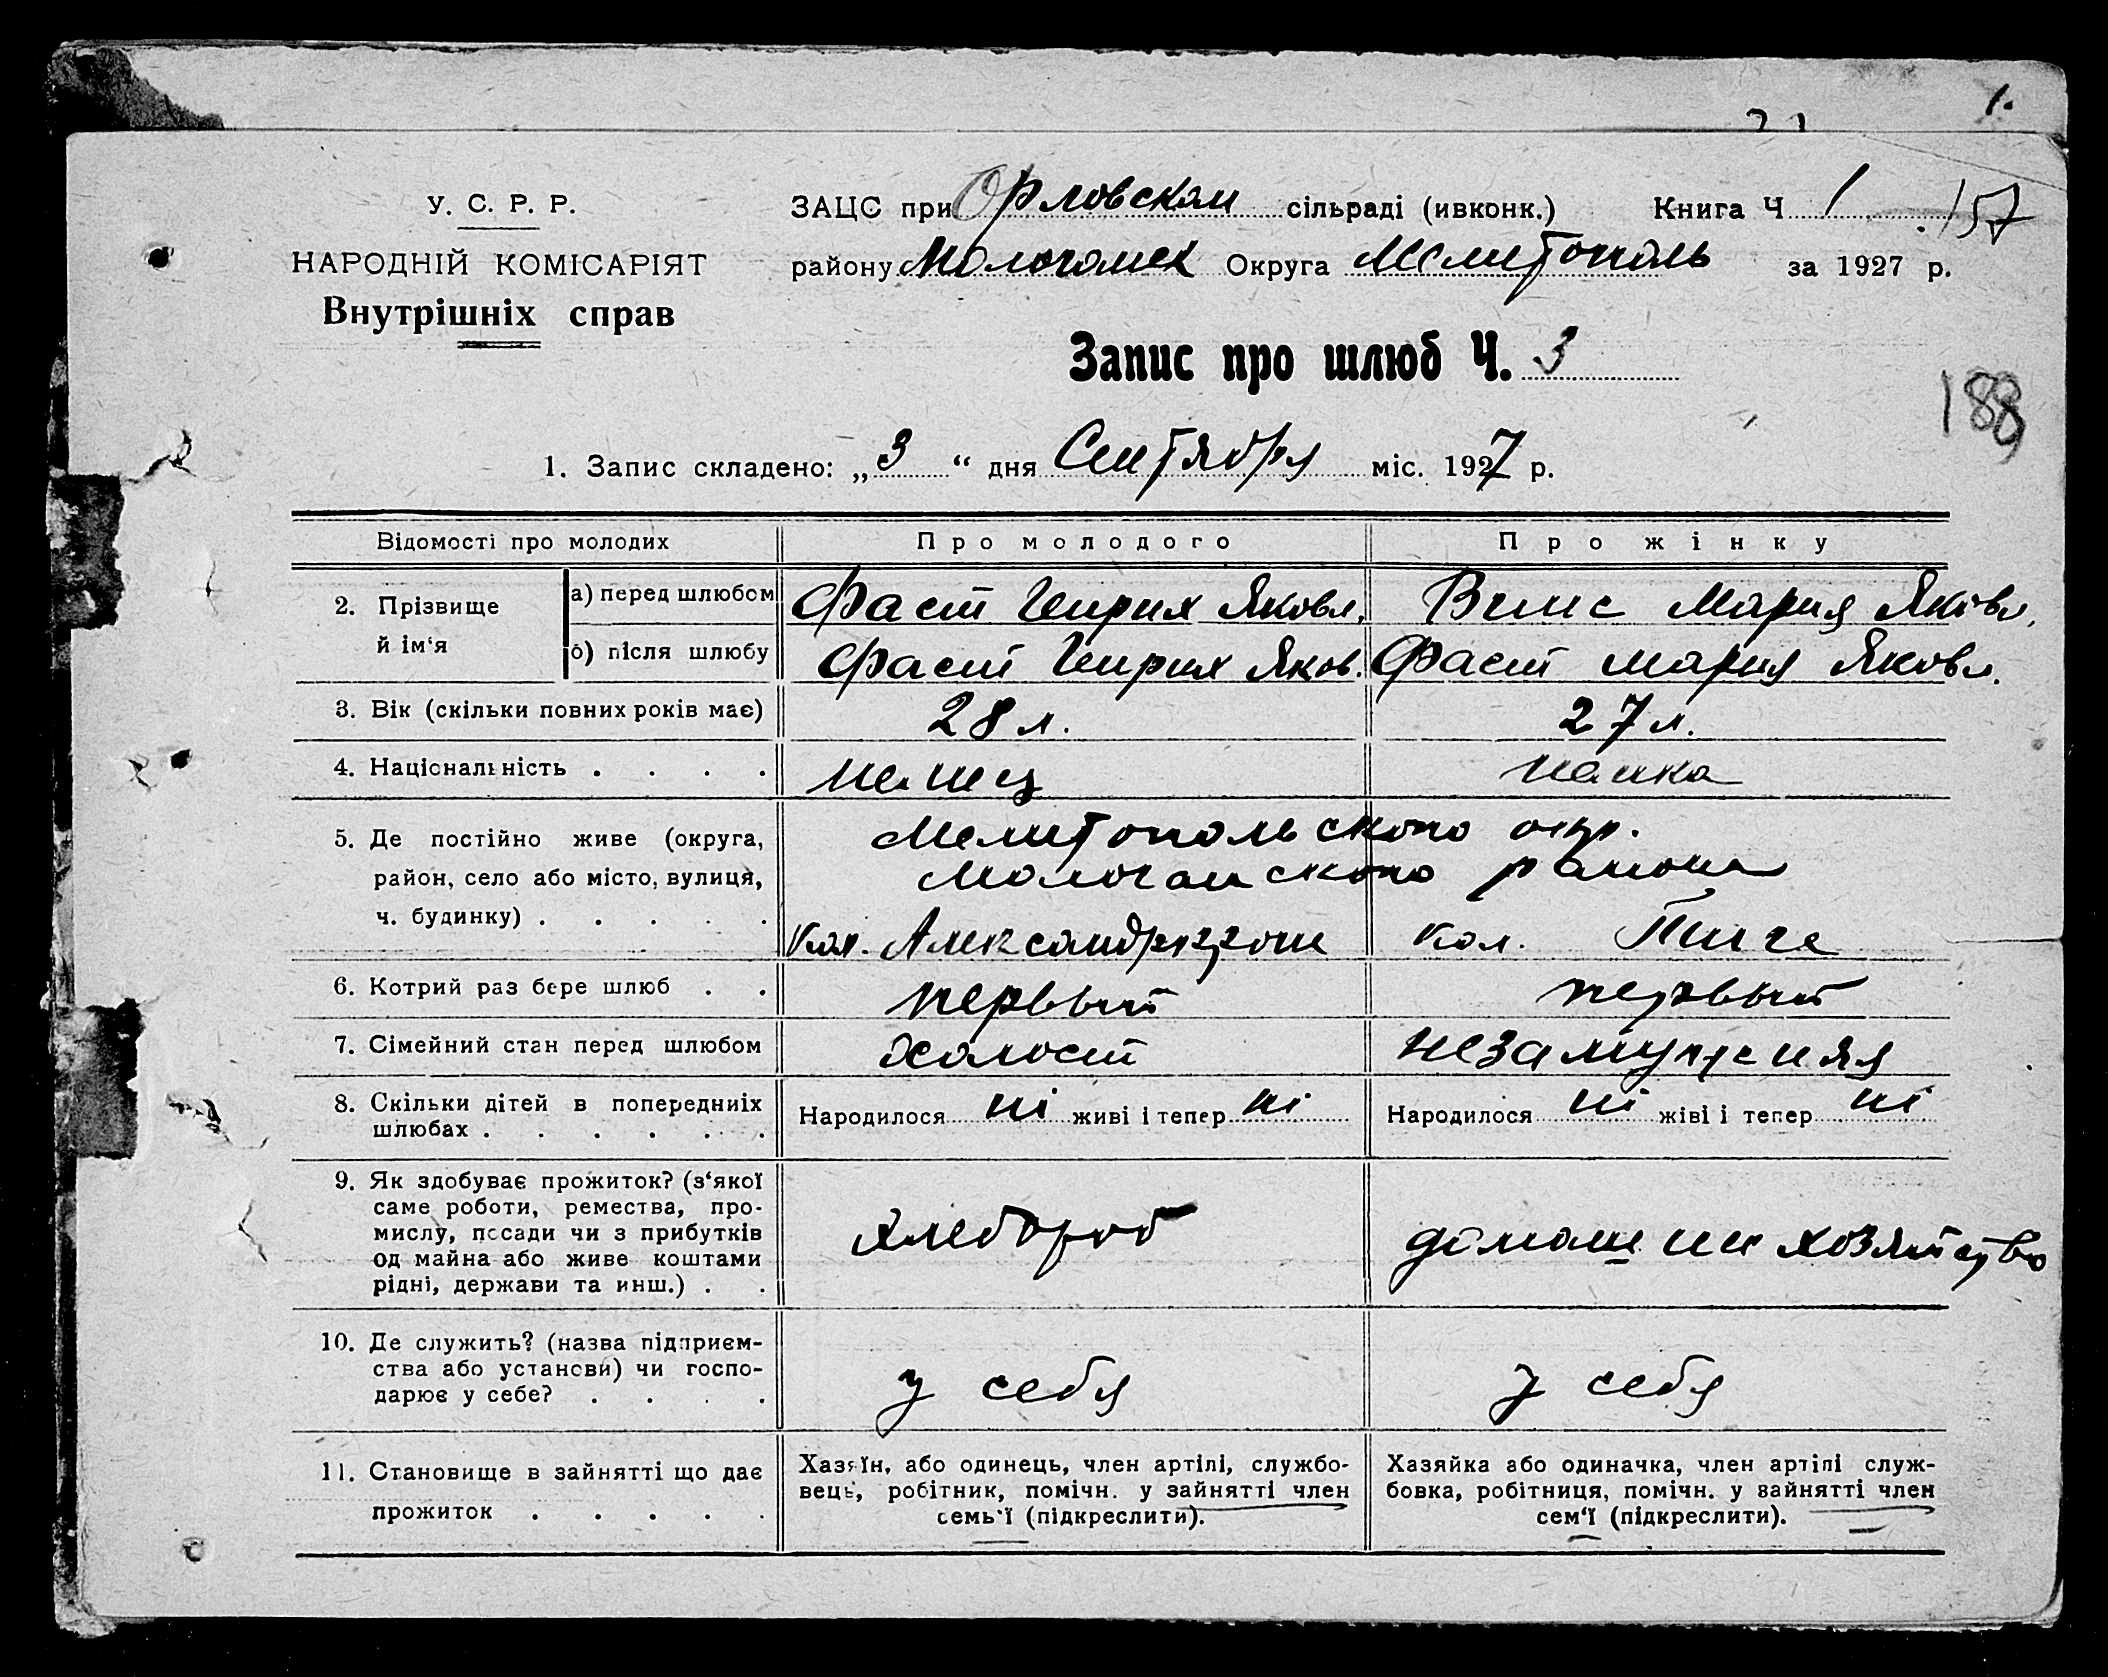 1.
У. С. Р. Р.
НАРОДНІЙ КОМІСАРІЯТ
Внутрішніх справ
ЗАЦС при Орловском сільраді (ивконк.) Книга Ч 1 157
району Молочанск Округа Мелитополь за 1927 р.
Запис про шлюб Ч. 3
188
1. Запис складено: „3“ дня Сентября міс. 1927 р.
Відомості про молодих Про молодого Про жінку
2. Прізвище й ім‘я
а) перед шлюбом Фаст Генрих Яковл. Винс Мария Яковл.
б) після шлюбу Фаст Генрих Яков. Фаст Мария Яковл.
3. Вік (скільки повних років має) 28 л. 27 л.
4. Національність . . . . немец немка
5. Де постійно живе (округа,
район, село або місто, вулиця,
ч. будинку) . . . . .
Мелитопольского окр.
Молочанского района
кол. Александркроне кол. Тиге
6. Котрий раз бере шлюб . . первый первый
7. Сімейний стан перед шлюбом холост незамужняя
8. Скільки дітей в попередниіх
шлюбах . . . . . .
Народилося ні живі і тепер ні Народилося ні жіві і тепер ні
9. Як здобуває прожиток? (з‘якої
саме роботи, ремества, про-
мислу, посади чи з прибутків
од майна або живе коштами
рідні, держави та инш.) . .
хлебороб домашнее хозяйство
10. Де служить? (назва підприєм-
ства або установи) чи госпо-
дарює у себе? . . . .
у себя у себя
11. Становище в зайнятті що дає
прожиток . . . . .
Хазяїн, або одинець, член артілі, службо-
вець, робітник, помічн. у зайнятті член
семь‘ї (підкреслити).
Хазяйка або одиначка, член артілі служ-
бовка, робітниця, помічн. у зайнятті член
сем‘ї (підкреслити).